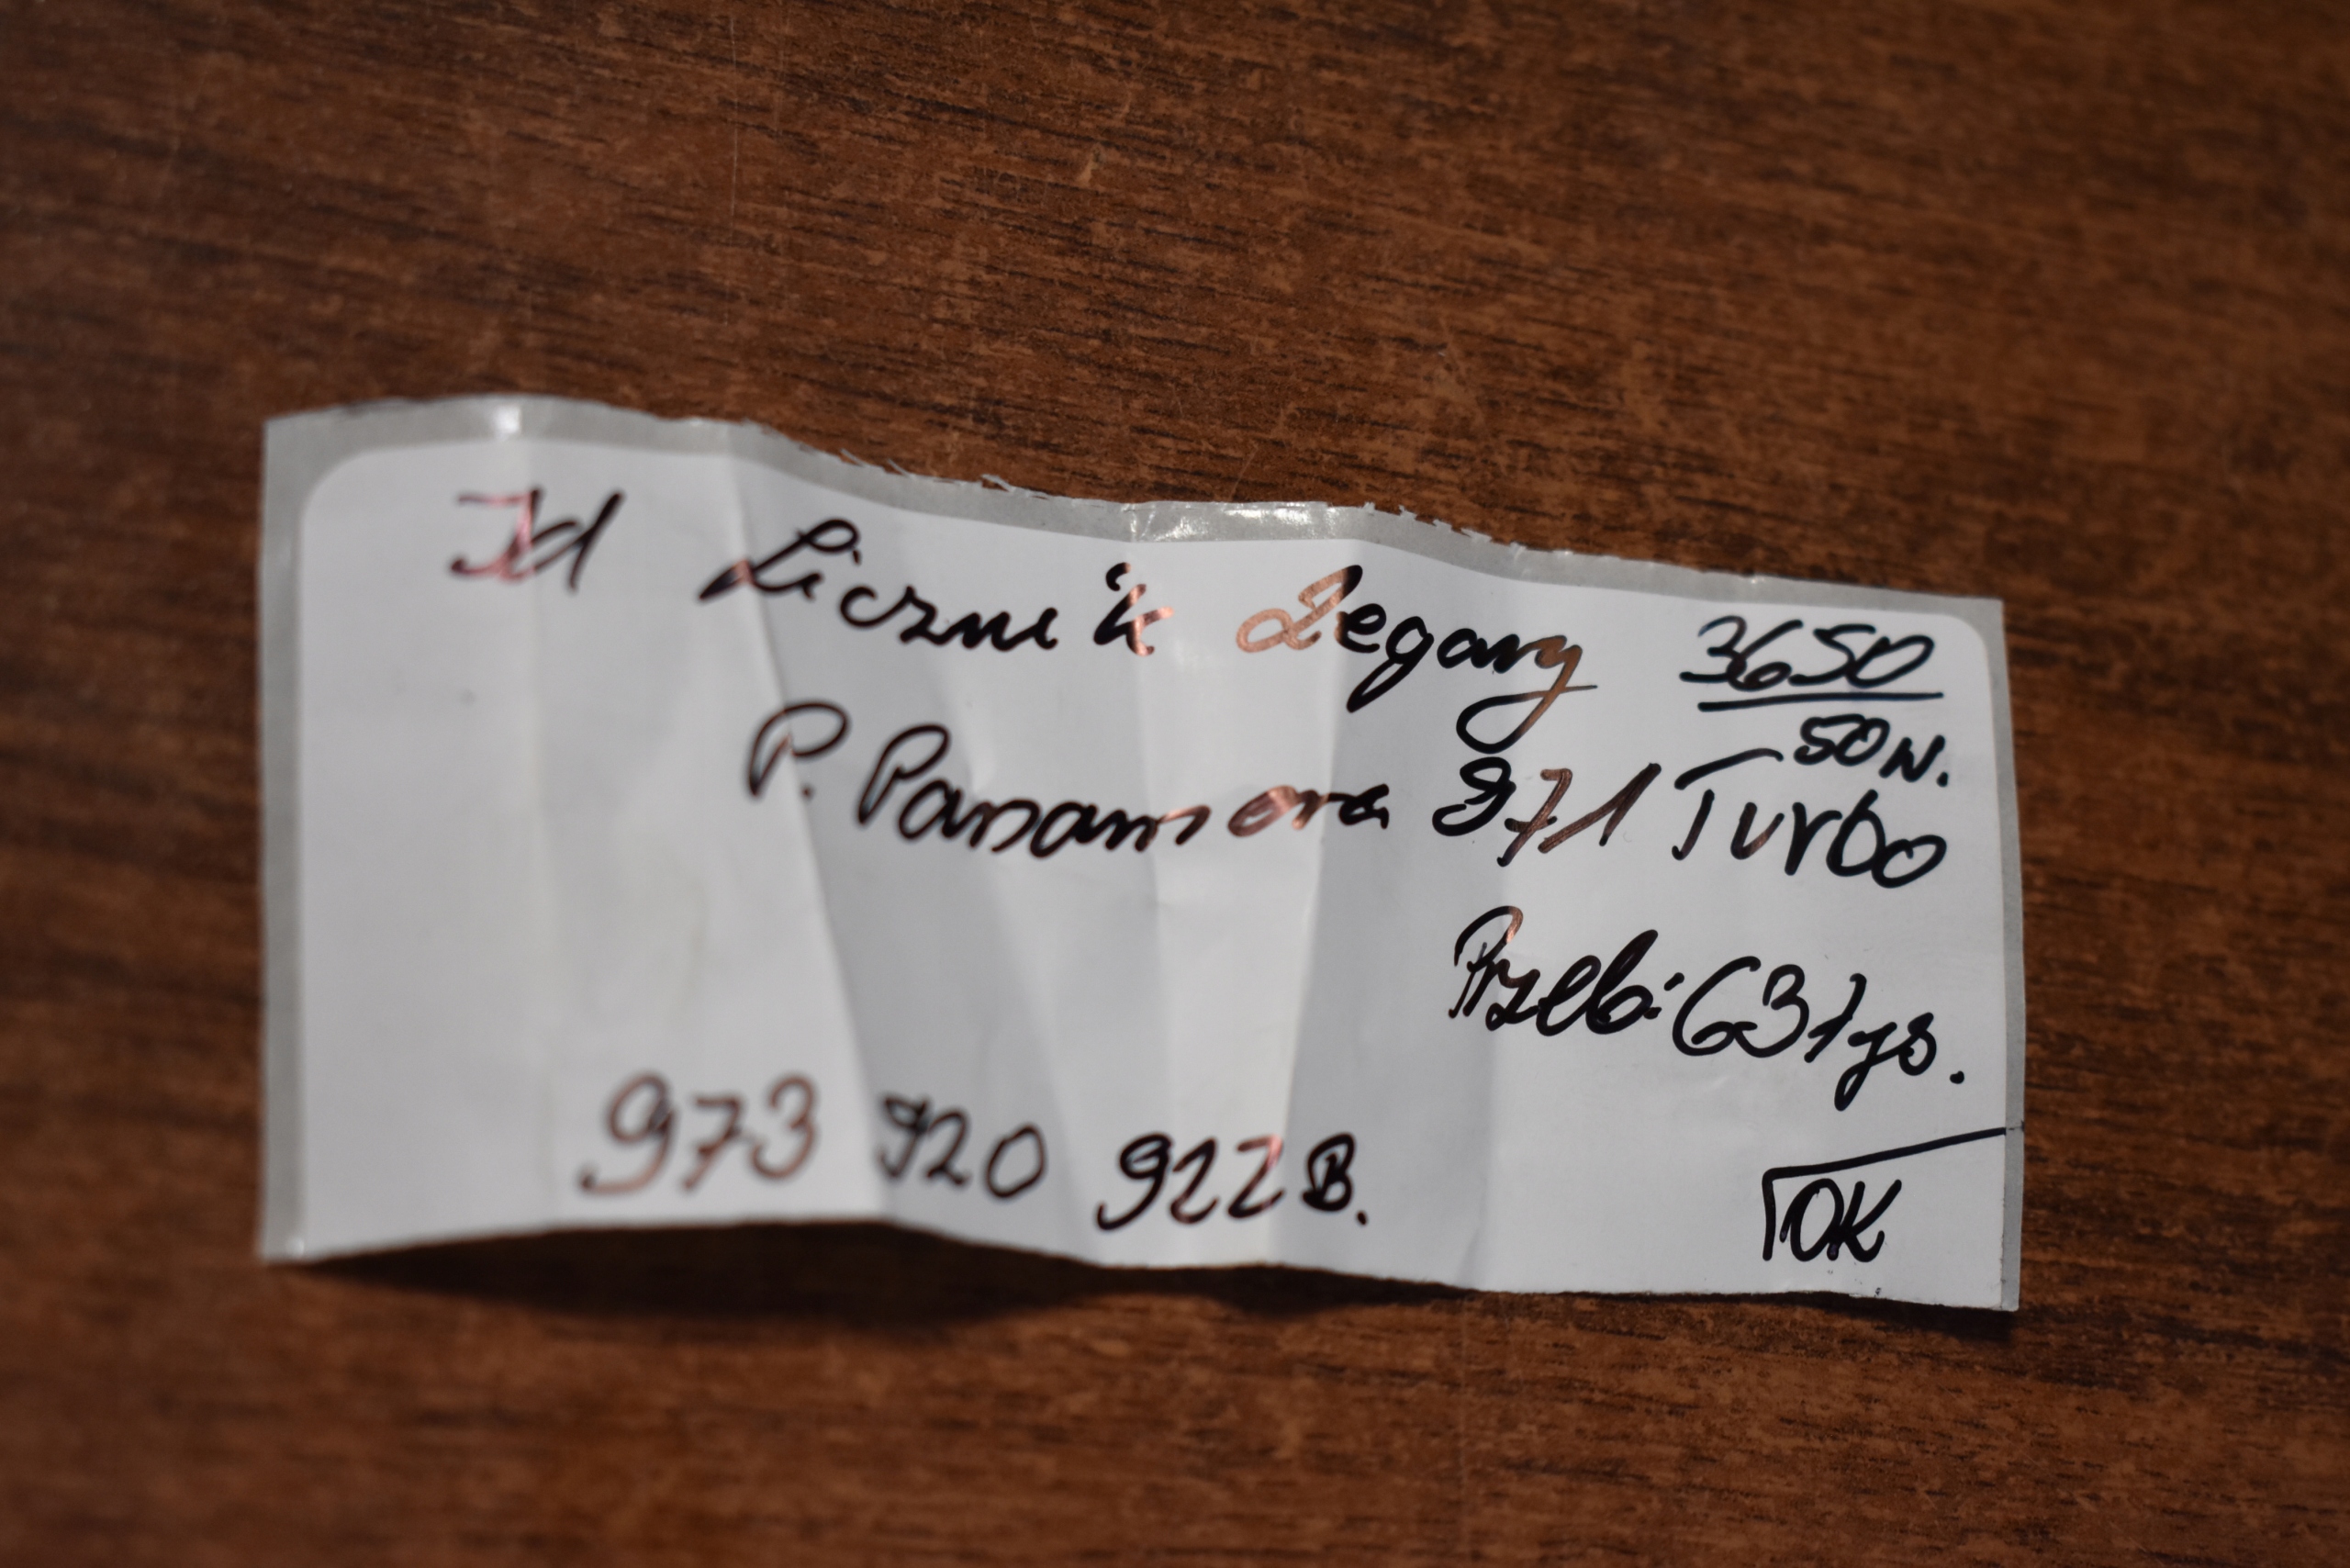 Id Licznik Zegary 3650
50 N.
P. Panamera 971 Turbo
Przeb: 63 tys.
973 920 922 B.
OK